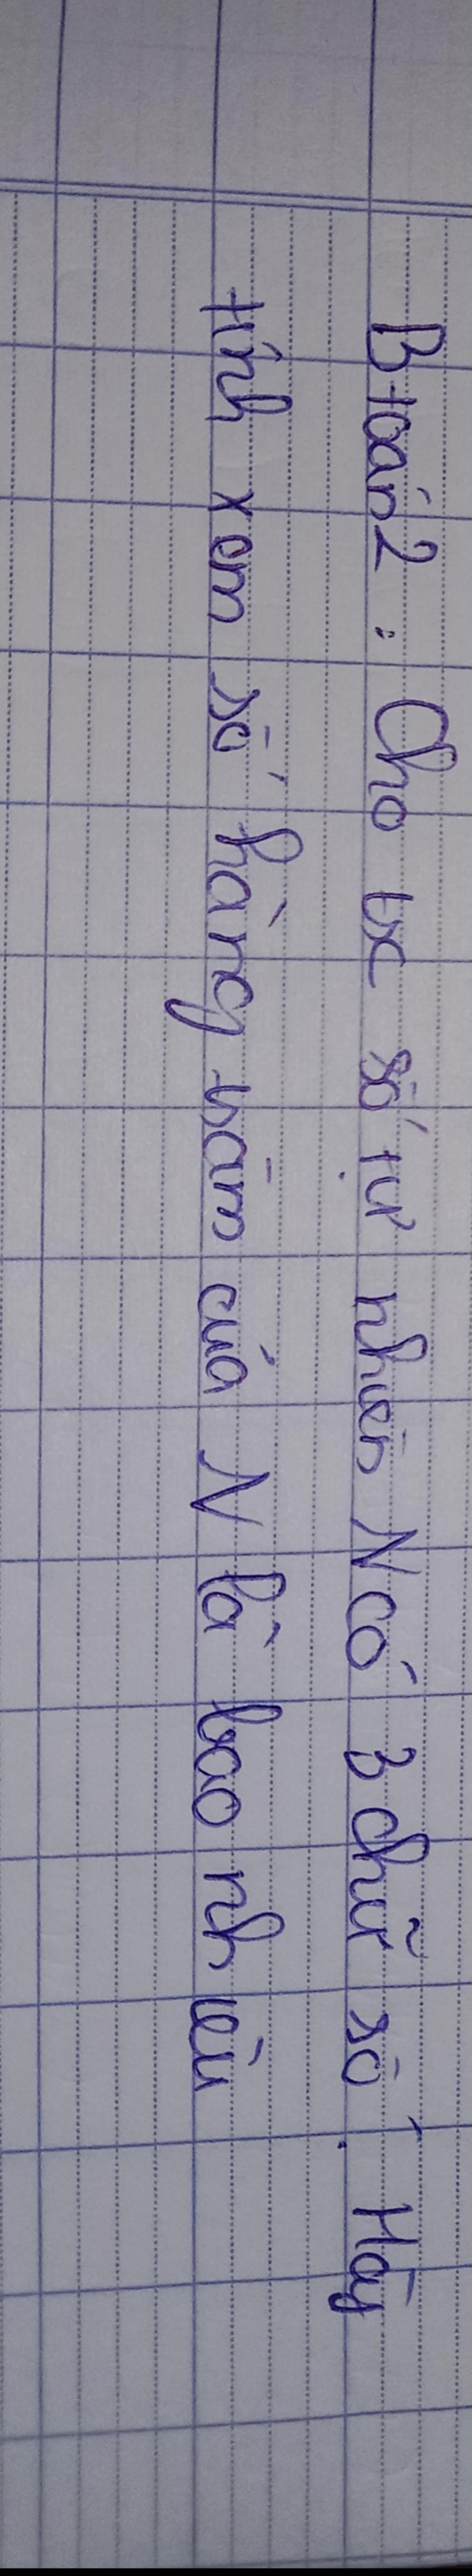 B toán 2 : Cho trc số tự nhiên N có 3 chữ số. Hãy
tính xem số hàng trăm của N là bao nhiêu